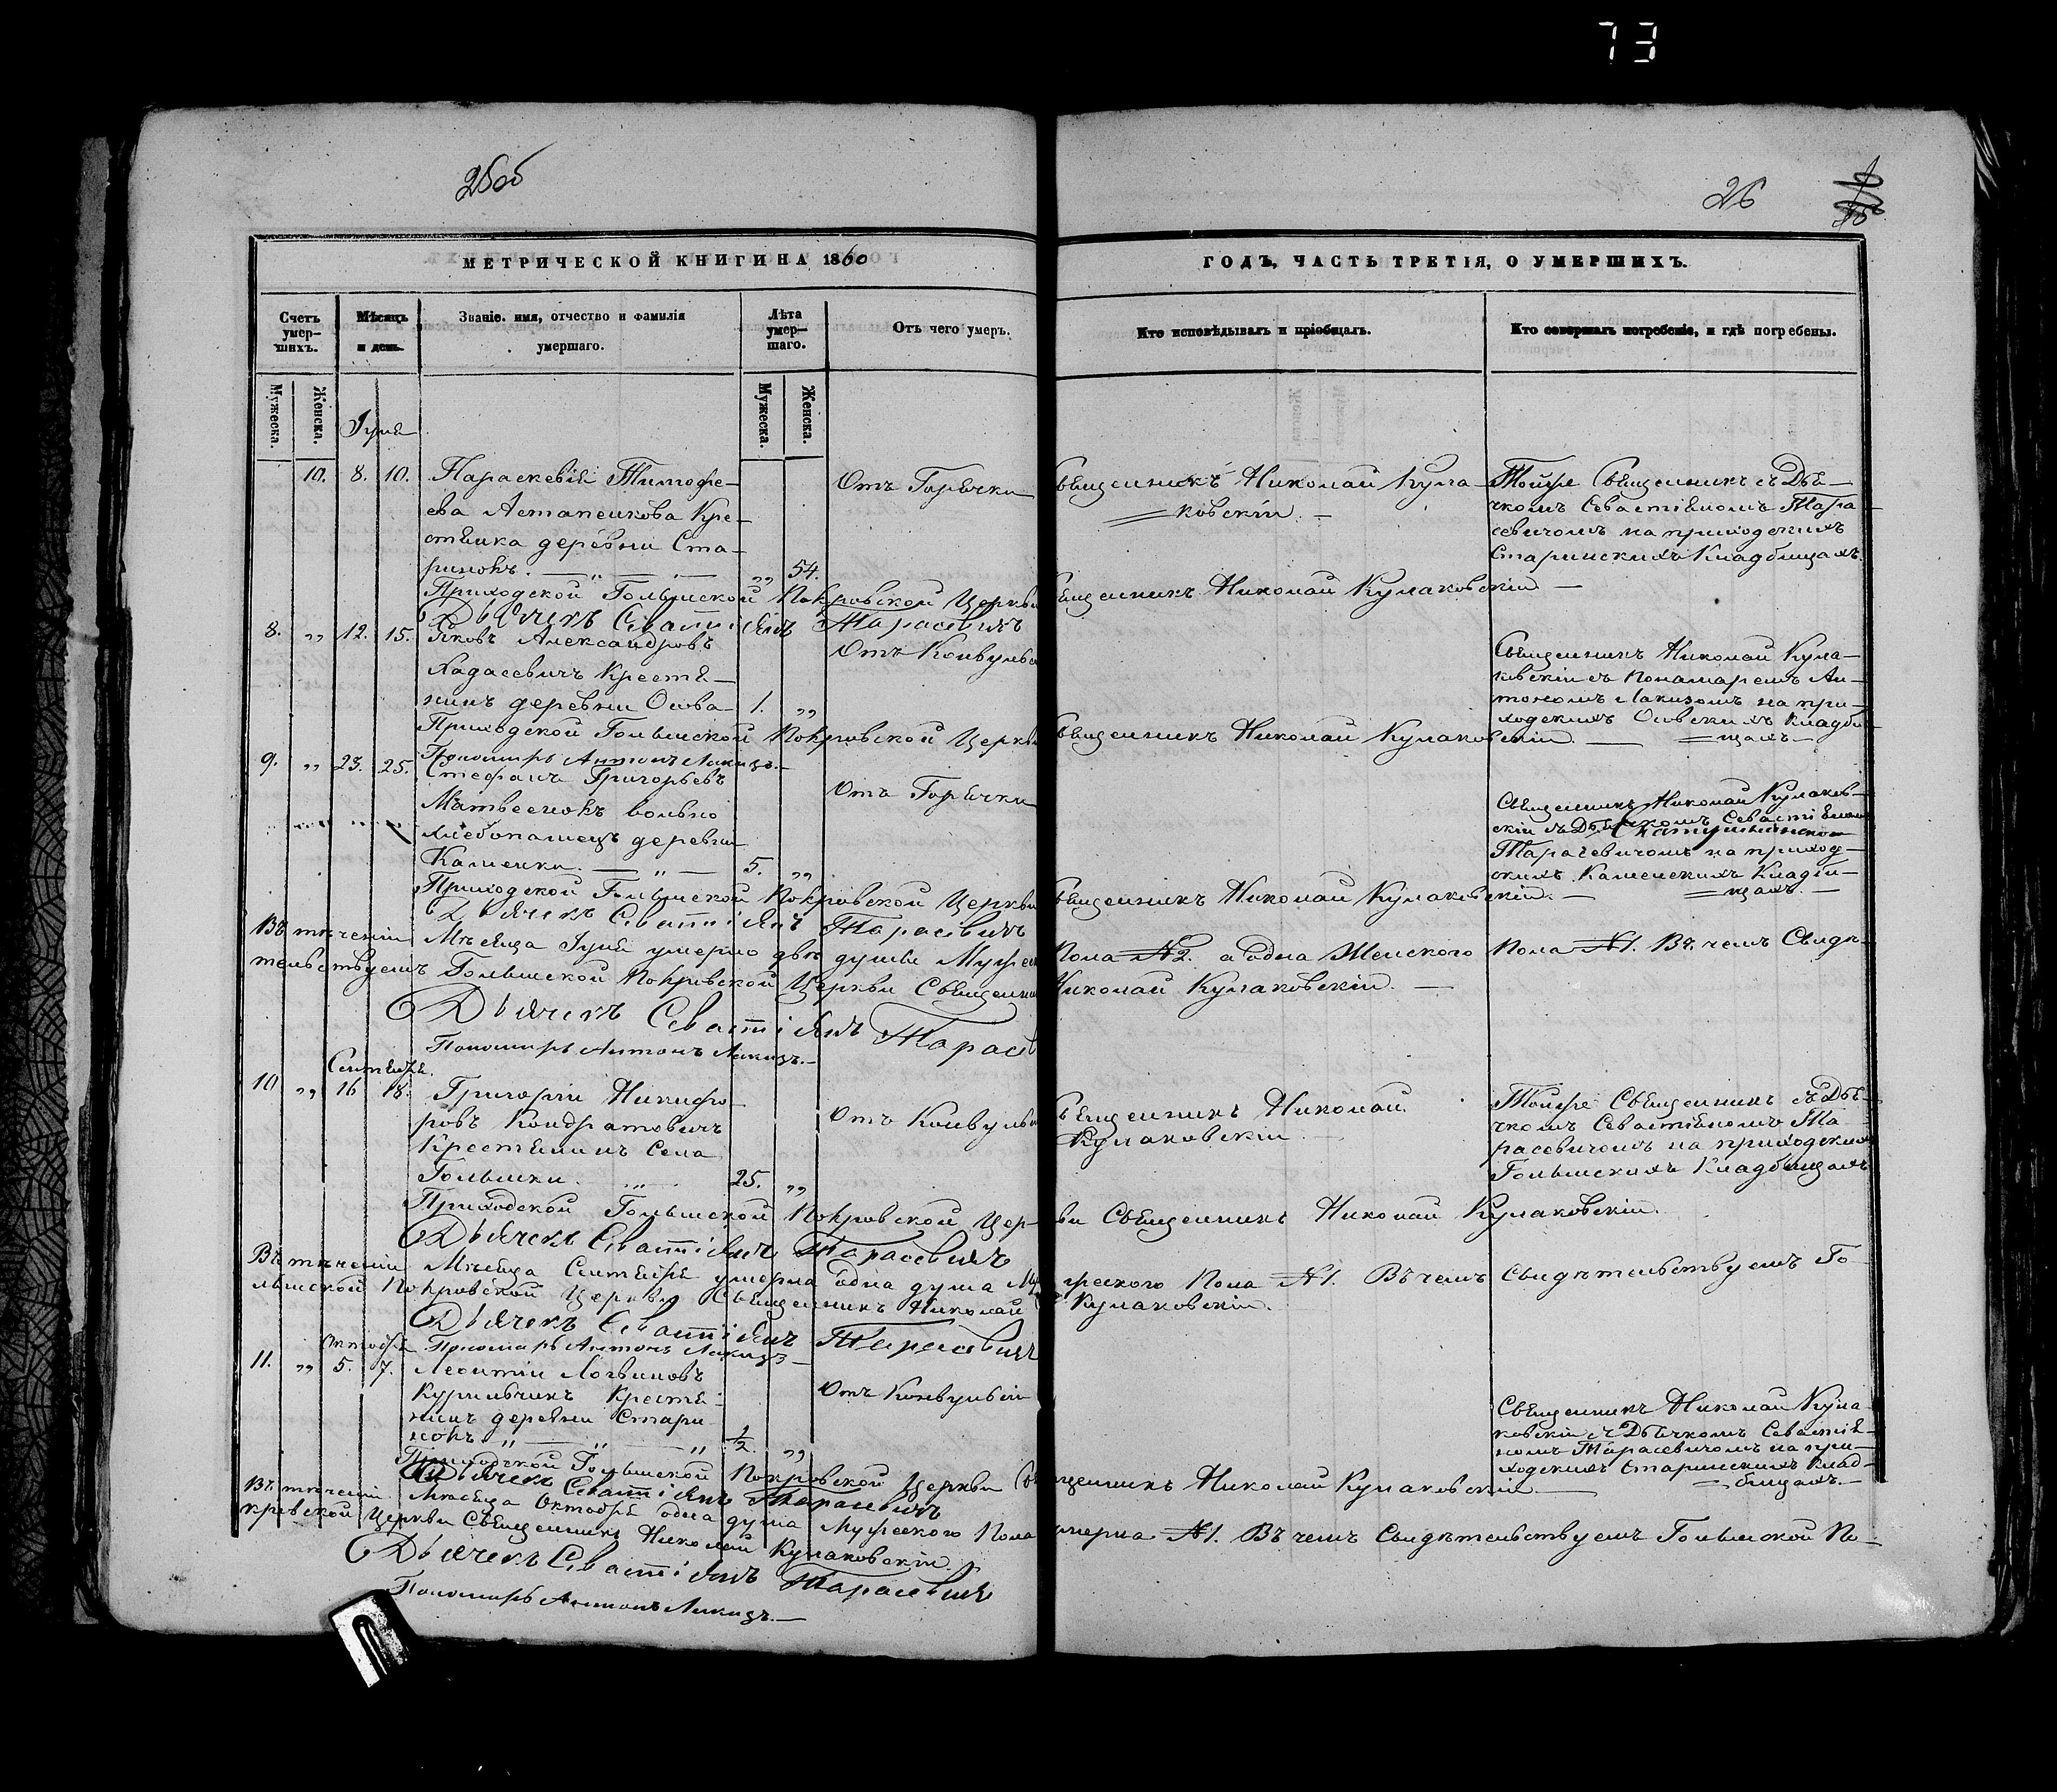 73
25об
26
МЕТРИЧЕСКОЙ КНИГИ НА 1860
ГОДЪ, ЧАСТЬ ТРЕТІЯ, О УМЕРШИХЪ.
Счетъ умер-шихъ.
Мѣсяцъ и день.
Званіе, имя, отчество и фамилія умершаго.
Лѣта умер-шаго.
Отъ чего умеръ.
Кто исповѣдывалъ и пріобщалъ.
Кто совершалъ погребеніе, и гдѣ погребены.
Мужеска.
Женска.
Мужеска.
Женска.
10. 8. 10. Параскевія Тимофе-
ева Астапенкова Кре-
стянка деревни Ста-
ринокъ. „ 54.
Отъ Горячки
Священникъ Николай Кула-
ковскій.
Тойже Священникъ съ Дья-
чкомъ Севастіяномъ Тара
севичомъ на приходскихъ
Старинскихъ Кладбищахъ.
Приходской Голышской Покровской Церкви Священникъ Николай Кулаковскій
Дьячекъ Севастіянъ Тарасевичъ
8. „ 12. 15. Яковъ Александровъ
Хадасевичъ Крестя-
нинъ деревни Осова 1. „
Отъ Конвульсі
Священникъ Николай Кула-
ковскій съ Понамаремъ Ан-
тономъ Лакизомъ на при-
ходскихъ Осовскихъ Кладби-
щахъ
Приходской Голышской Покровской Церкви Священникъ Николай Кулаковскій.
Пономаръ Антонъ Лакизъ.
9. „ 23. 25. Стефанъ Григорьевъ
Матвеенокъ вольно
хлебопашецъ деревни
Каменки. 5. „
Отъ Горячки
Священникъ Николай Кулаков-
скій съ Дьячкомъ Севастіяном
Тарасевичомъ на приход-
скихъ Каменскихъ Кладби-
щахъ.
Приходской Голышской Покровской Церкви Священникъ Николай Кулаковскій.
Дьячекъ Севастіянъ Тарасевичъ
Въ теченіи Мѣсяца умерло двѣ души Мужеск Пола №2. а одна Женского Пола №1. Въ чемъ Свидѣ-
тельствуемъ Голышской Покровской Церкви Священни Николай Кулаковскій.
Дьячекъ Севастіянъ Тарасев
Пономаръ Антонъ Лакизъ.
Сентября.
10 „ 16 18. Григорій Никифо
ровъ Кондратовичъ
Крестянинъ Села
Голышки. 25. „
Отъ Конвульсі
Священникъ Николай
Кулаковскій.
Тойже Священникъ съ Дья-
чкомъ Севастіяномъ Та
расевичомъ на приходских
Голышскихъ Кладбищахъ
Приходской Голышской Покровской Цер-кви Священникъ Николай Кулаковскій.
Дьячекъ Севастіянъ Тарасевичъ
Въ теченіи Мѣсяца Сентября умерла одна душа Мужеского Пола №1. Въ чемъ Свидѣтельствуемъ Го
лышской Покровской Церкви Священникъ Николай Кулаковскій.
Дьячекъ Севастіянъ Тарасевичъ
Пономаръ Антонъ Лакизъ
Октября
11. „ 5. 7. Леонтій Логвиновъ
Курильчикъ Крестя-
нинъ деревни Стари
нокъ „ „ „ 1/2. „
Отъ Конвульсіи
Священникъ Николай Кула
ковскій съ Дьячкомъ Севастія-
номъ Тарасевичомъ на при-
ходскихъ Старинскихъ Клад-
бищахъ.
Приходской Голышской Покровской Церкви Священникъ Николай Кулаковскій
Дьячекъ Севастіянъ Тарасевичъ
Въ теченіи Мѣсяца Октября одна душа Мужеского Пола умерла №1. Въ чемъ Свидѣтельствуемъ Голышской По-
кровской Церкви Священникъ Николай Кулаковскій
Дьячекъ Севастіянъ Тарасевичъ
Пономаръ Антонъ Лакизъ.